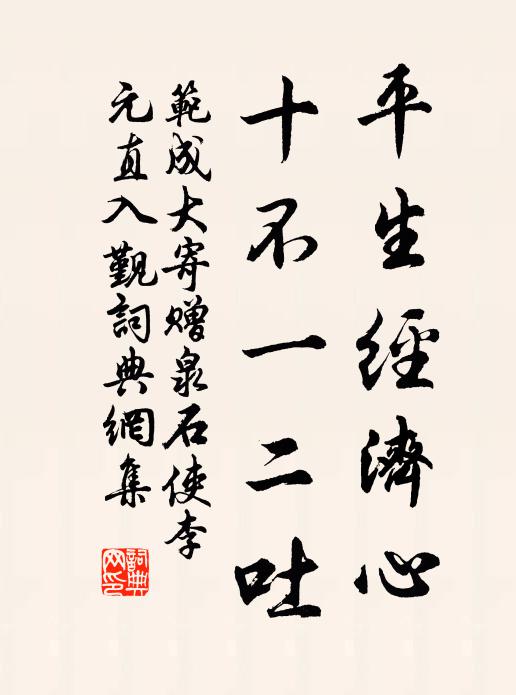 平生經濟心
十不一二吐
範成大寄贈泉石使李
元直入觀詞典網集
詞典
网印